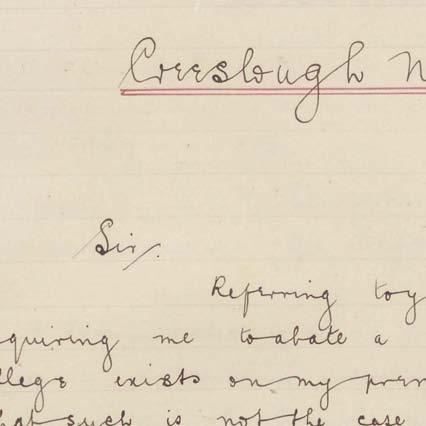 Creeslough N
Sir/.
Referring toy
equiring me toabate a
llege exists on my prem
hat such is not the case